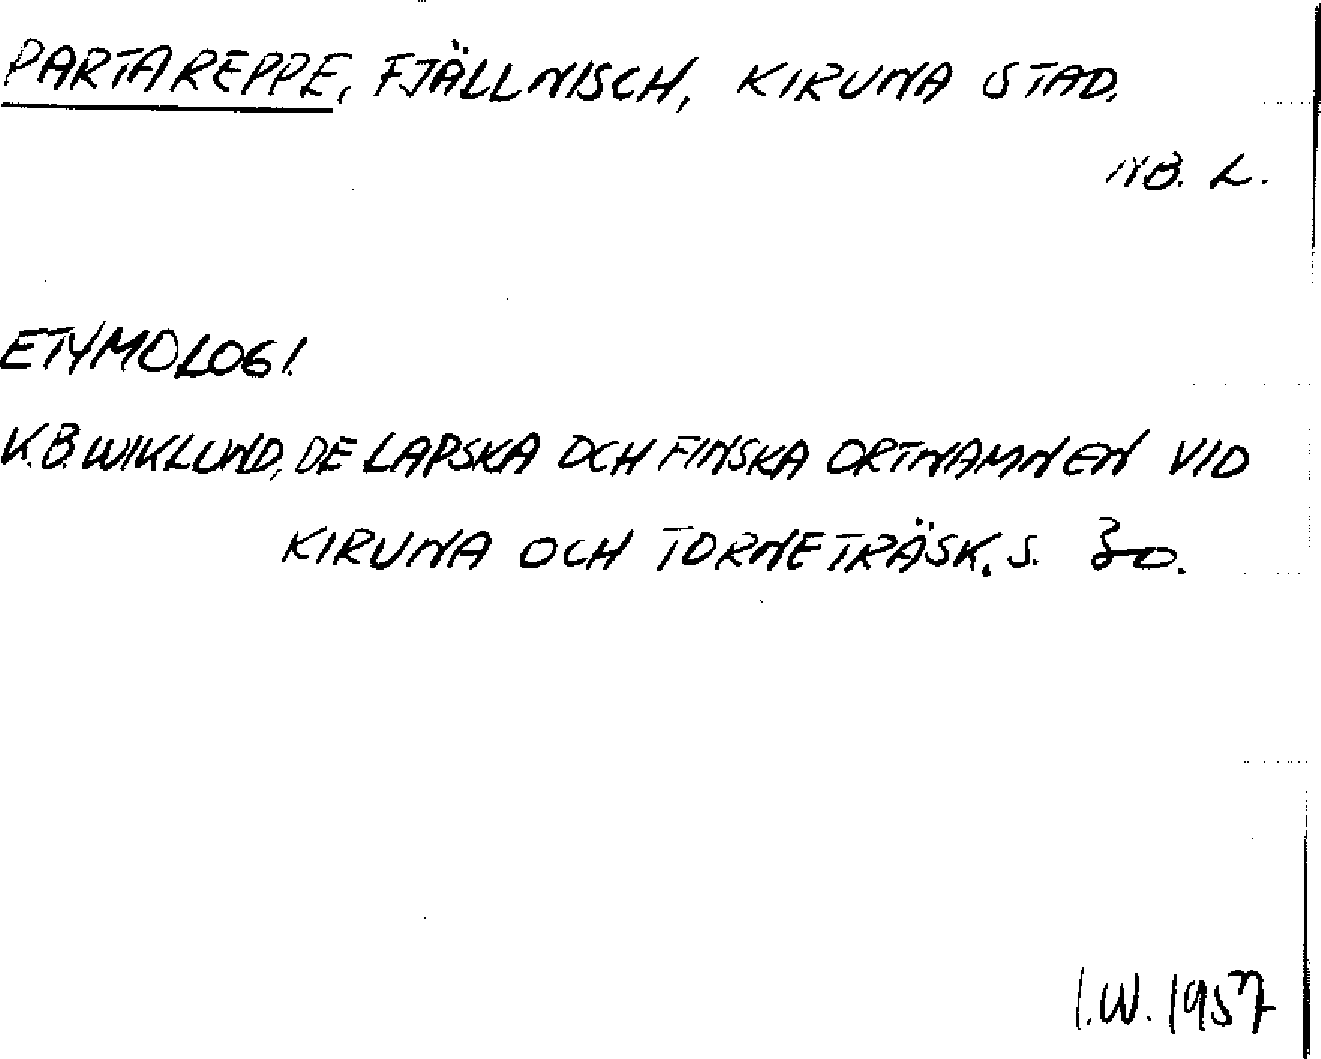 PARTAREPPE, FJÄLLNISCH, KIRUNA STAD.
NB. L.
ETYMOLOGI.
K.B. WIKLUND, DE LAPSKA OCH FINSKA ORTNAMNEN VID
KIRUNA OCH TORNETRÄSK. S. 30.
I.W. 1957